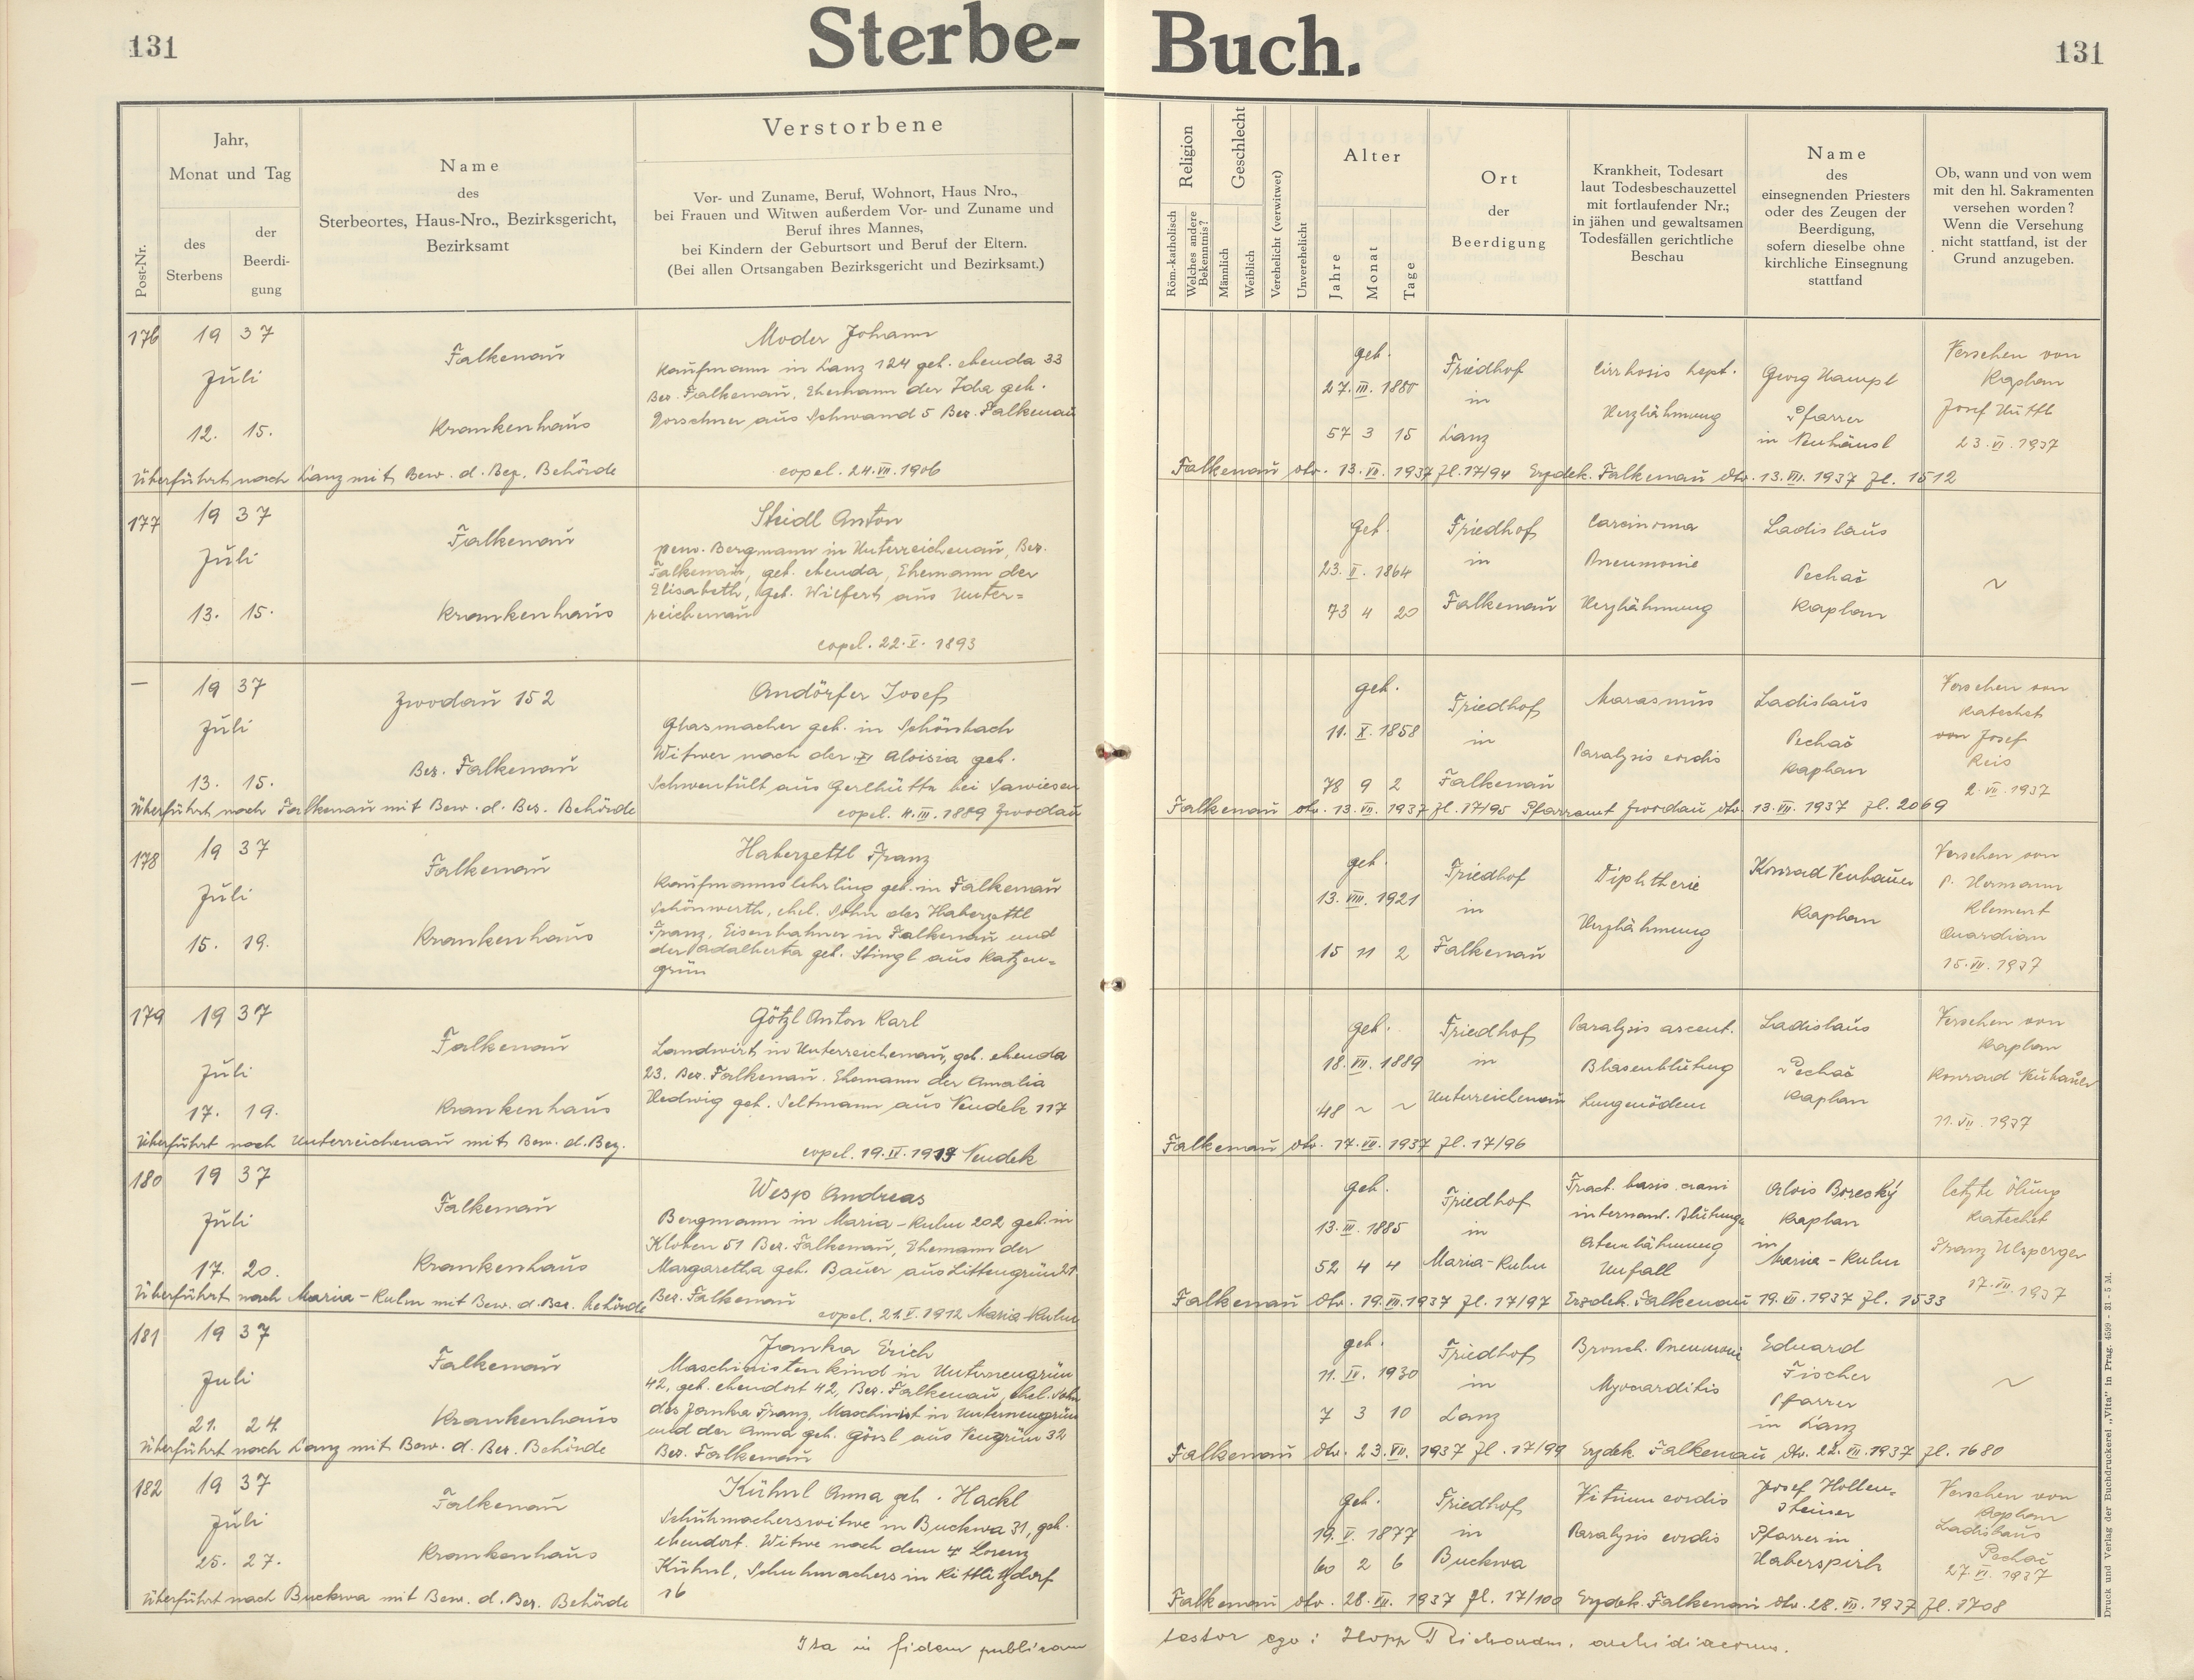 131
Sterbe-
Buch.
131
Post-Nr.
Jahr,
Monat und Tag
des
Sterbens
der
Beerdi-
gung
Name
des
Sterbeortes, Haus-Nro., Bezirksgericht,
Bezirksamt
Verstorbene
Vor- und Zuname, Beruf, Wohnort, Haus Nro.,
bei Frauen und Witwen außerdem Vor- und Zuname und
Beruf ihres Mannes,
bei Kindern der Geburtsort und Beruf der Eltern.
(Bei allen Ortsangaben Bezirksgericht und Bezirksamt.)
Religion
Röm.-katholisch
Welches andere
Bekenntnis?
Geschlecht
Männlich
Weiblich
Verehelicht (verwitwet)
Unverehelicht
Alter
Jahre
Monat
Tage
Ort
der
Beerdigung
Krankheit, Todesart
laut Todesbeschauzettel
mit fortlaufender Nr.;
in jähen und gewaltsamen
Todesfällen gerichtliche
Beschau
Name
des
einsegnenden Priesters
oder des Zeugen der
Beerdigung,
sofern dieselbe ohne
kirchliche Einsegnung
stattfand
Ob, wann und von wem
mit den hl. Sakramenten
versehen worden?
Wenn die Versehung
nicht stattfand, ist der
Grund anzugeben.
176
19 37
Juli
12. 15.
Falkenau
Krankenhaus
Moder Johann
Kaufmann in Lanz 124 geb. ebenda 33
Bez. Falkenau, Ehemann der Ida geb.
Dorschner aus Schwand 5 Bez. Falkenau
copel. 24.VII.1906
geb.
27.III.1880
57 3 15
Friedhof
in
Lanz
Cirrhosis hept.
Herzlähmung
Georg Hampl
Pfarrer
in Neuhäusl
Versehen von
Kaplan
Josef
23.VI.1937
Überführt nach Lanz mit Bew. d. Bez. Behörde
Falkenau dto. 13.VII.1937 Zl.17/94 Erzdek. Falkenau dto. 13.VII.1937 Zl. 1512
177
19 37
Juli
13. 15.
Falkenau
Krankenhaus
Steidl Anton
pens. Bergmann in Unterreichenau, Bez.
Falkenau, geb. ebenda, Ehemann der
Elisabeth, geb. Wilfert aus Unter=
reichenau
copel. 22.X. 1893
geb.
23.II.1864
73 4 20
Friedhof
in
Falkenau
Carcinoma
Pneumonie
Herzlähmung
Ladislaus
Pechač
Kaplan
~
—
19 37
Juli
13. 15.
Zwodau 152
Bez. Falkenau
Andörfer Josef
Glasmacher geb. in Schönbach
Witwer nach der Aloisia geb.
aus Gerlhütte bei
copel. 4.III.1889 Zwodau
geb.
11.X.1858
78 9 2
Friedhof
in
Falkenau
Marasmus
Paralysis cordis
Ladislaus
Pechač
Kaplan
Versehen von
Katechet
von Josef
Reis
2.VII.1937
Überführt nach Falkenau mit Bew. d. Bez. Behörde
Falkenau dto. 13.VII.1937 Zl.17/95 Pfarramt Zwodau dto. 13.VII.1937 Zl. 2069
178
19 37
Juli
15. 19.
Falkenau
Krankenhaus
Haberzettl Franz
Kaufmannslehrling geb. in Falkenau
Schönwerth, ehel. Sohn des Haberzettl
Franz, Eisenbahner in Falkenau und
der Adalberta geb. Stingl aus Katzen=
grün
geb.
13.VIII.1921
15 11 2
Friedhof
in
Falkenau
Diphtherie
Herzlähmung
Konrad Neubauer
Kaplan
Versehen von
P. Hermann
Klement
Quardian
15.VII.1937
179
19 37
Juli
17. 19.
Falkenau
Krankenhaus
Götzl Anton Karl
Landwirt in Unterreichenau, geb. ebenda
23. Bez. Falkenau. Ehemann der Amalia
Hedwig geb. Seltmann aus Neudek 117
copel. 19.II.1919 Neudek
geb.
18.VII.1889
48 ~ ~
Friedhof
in
Unterreichenau
Paralysis ascent.
Blasenblutung
Lungenödem
Ladislaus
Pechač
Kaplan
Versehen von
Kaplan
Konrad Neubauer
11.VII.1937
Überführt nach Unterreichenau mit Bew. d. Bez.
Falkenau dto. 17.VII.1937 Zl.17/96
180
19 37
Juli
17. 20.
Falkenau
Krankenhaus
Wesp Andreas
Bergmann in Maria-Kulm 202 geb. in
Kloben 51 Bez. Falkenau, Ehemann der
Margaretha geb. Bauer aus Littengrün 21
Bez. Falkenau
copel. 21.V.1912 Maria-Kulm
geb.
13.III.1885
52 4 4
Friedhof
in
Maria-Kulm
Fract. basis crani
Blutung
Atemlähmung
Unfall
Alois Borecký
Kaplan
in
Maria-Kulm
letzte Ölung
Katechet
Franz Ulsperger
17.VII.1937
Überführt nach Maria-Kulm mit Bew. d. Bez. Behörde
Falkenau dto. 19.VII.1937 Zl.17/97 Erzdek. Falkenau 19.VII.1937 Zl. 1533
181
19 37
Juli
21. 24.
Falkenau
Krankenhaus
Janka Erich
Maschinistenkind in Unterneugrün
42, geb. ebendort 42, Bez. Falkenau, ehel. Sohn
des Janka Franz, Maschinist in Unterneugrün
und der Anna geb. Gössl aus Neugrün 32
Bez. Falkenau
geb.
11.IV.1930
7 3 10
Friedhof
in
Lanz
Bronch. Pneumonie
Myocarditis
Eduard
Fischer
Pfarrer
in Lanz
~
Überführt nach Lanz mit Bew. d. Bez. Behörde
Falkenau dto. 23.VII.1937 Zl.17/99 Erzdek. Falkenau dto. 22.VII.1937 Zl. 1680
182
19 37
Juli
25. 27.
Falkenau
Krankenhaus
Kühnl Anna geb. Hackl
Schuhmacherswitwe in Buckwa 31, geb.
ebendort. Witwe nach dem † Lorenz
Kühnl, Schuhmachers in Kittlitzdorf
16
geb.
19.V.1877
60 2 6
Friedhof
in
Buckwa
Vitium cordis
Paralysis cordis
Josef Hollen-
steiner
Pfarrer in
Haberspirk
Versehen von
Kaplan
Ladislaus
Pechač
27.VI.1937
Überführt nach Buckwa mit Bew. d. Bez. Behörde
Falkenau dto. 28.VII.1937 Zl. 17/100 Erzdek. Falkenau dto. 28.VII.1937 Zl. 1708
Ita in fidem publicam
testor ego: Hopp Richardus, archidiaconus.
Druck und Verlag der Buchdruckerei „Vita" in Prag. 4599 - 31 - 5 M.